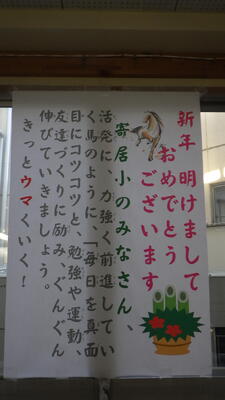 新年 明けまして
おめでとう
ございます
寄居小のみなさん、
活発に、力強く前進してい
く馬のように、「毎日を真面
目にコツコツと、勉強や運動、
友達づくりに励み、ぐんぐん
伸びていきましょう。
きっとウマくいく!